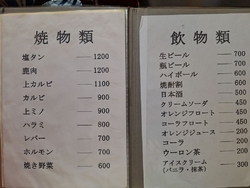 焼物類
塩タン 1200
鹿肉 1200
上カルビ 1100
カルビ 900
上ミノ 900
ハラミ 800
レバー 700
ホルモン 700
焼き野菜 600
飲物類
生ビール 700
瓶ビール 700
ハイボール 600
焼酎割 600
日本酒 500
クリームソーダ 450
オレンジフロート 450
コーラフロート 450
オレンジジュース 200
コーラ 200
ウーロン茶 200
アイスクリーム 300
(バニラ・抹茶)